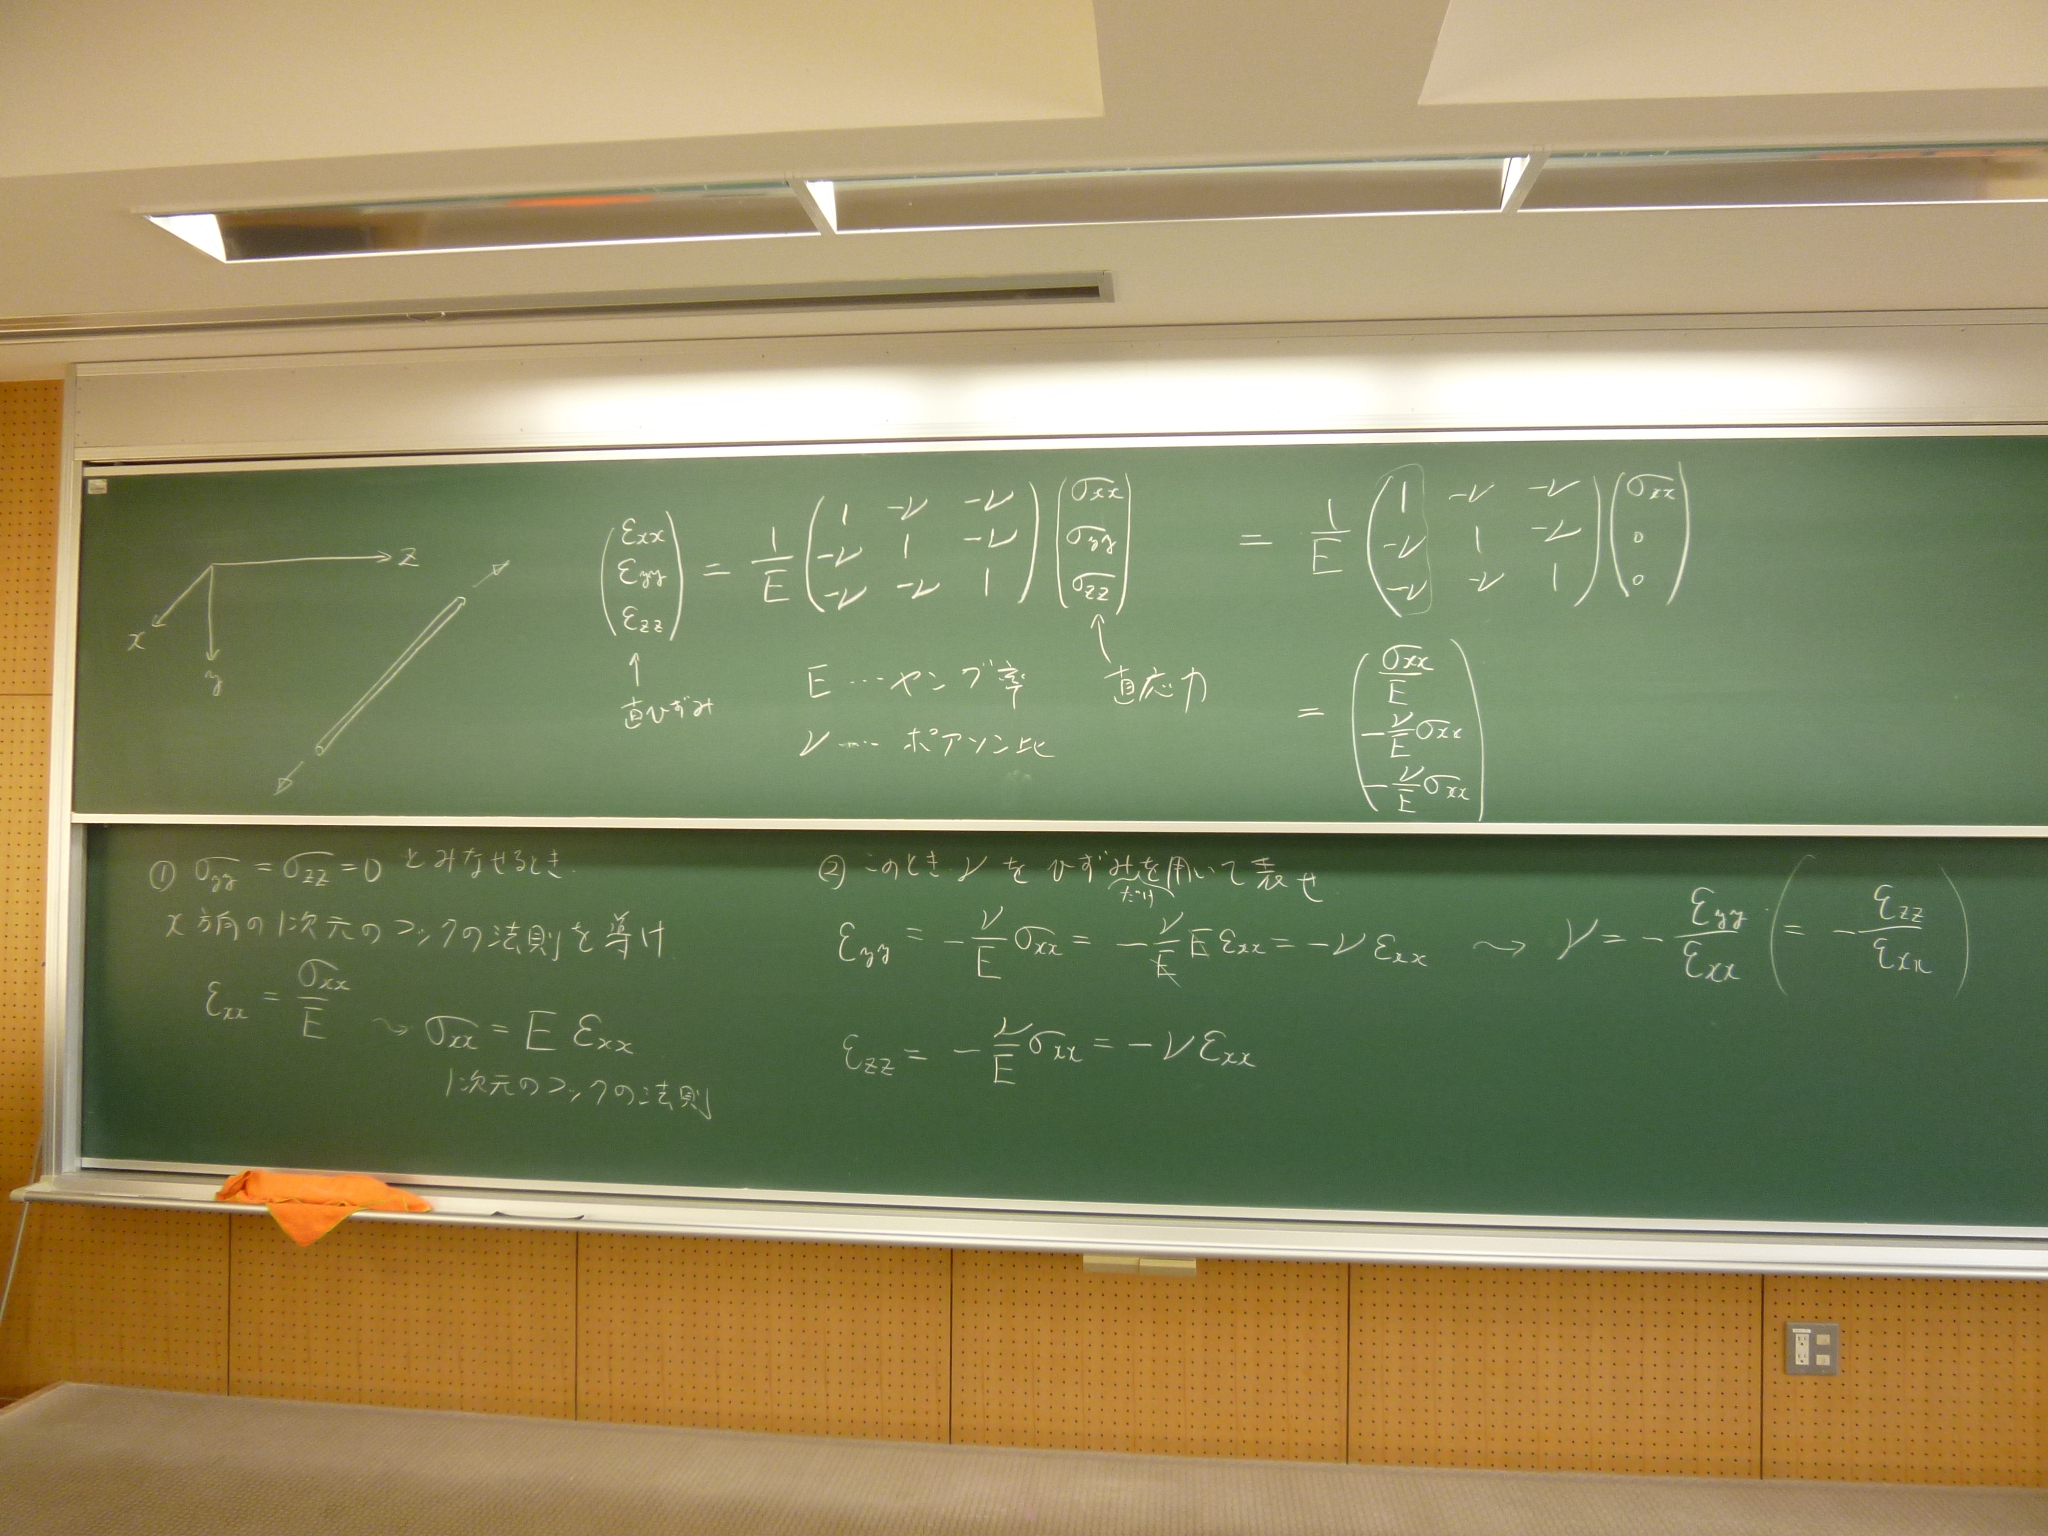 z
x
y
(εxx εyy εzz) = 1/E (1 -ν -ν / -ν 1 -ν / -ν -ν 1) (σxx σyy σzz) = 1/E (1 -ν -ν / -ν 1 -ν / -ν -ν 1) (σxx 0 0)
↑ 直ひずみ
↑ 直応力
E … ヤング率
ν … ポアソン比
= (σxx/E -ν/E σxx -ν/E σxx)
① σyy = σzz = 0 とみなせるとき.
x方向の1次元のフックの法則を導け.
εxx = σxx/E ⇝ σxx = E εxx
1次元のフックの法則
② このとき ν を ひずみだけを用いて表せ
εyy = -ν/E σxx = -ν/E E εxx = -ν εxx ⇝ ν = - εyy/εxx (= - εzz/εxx)
εzz = -ν/E σxx = -ν εxx